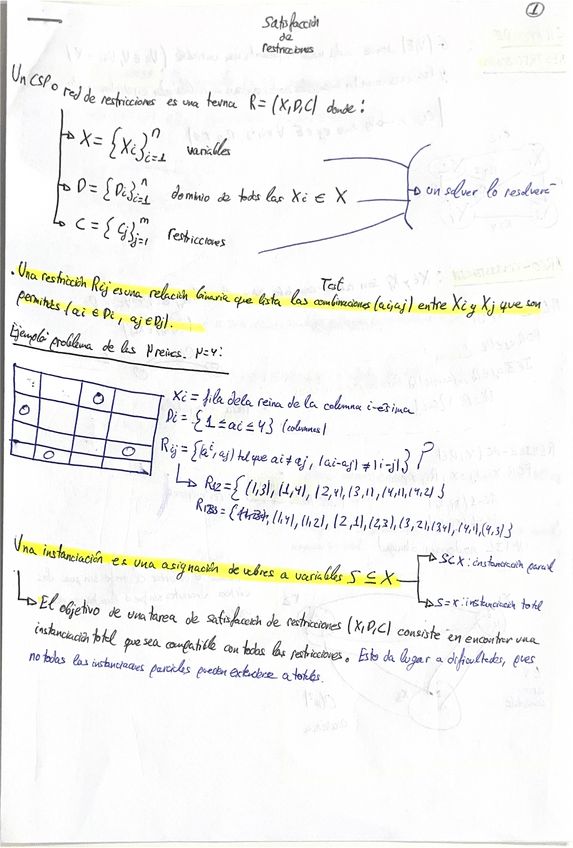 1
Satisfacción
de
restricciones
Un CSP o red de restricciones es una terna R = (X,D,C) donde:
X = {Xi}ⁿi=1 variables
D = {Di}ⁿi=1 dominio de todas las Xi ∈ X
un solver lo resolverá
C = {Cj}ᵐj=1 restricciones
Test
. Una restricción Rij es una relación binaria que lista las combinaciones (ai,aj) entre Xi y Xj que son
permitidas (ai ∈ Di, aj ∈ Dj).
Ejemplo problema de las N reinas. N=4:
Xi = fila de la reina de la columna i-ésima
Di = {1 ≤ ai ≤ 4} (columnas)
Rij = {(ai, aj) tal que ai ≠ aj, |ai-aj| ≠ |i-j|} ?
R12 = { (1,3), (1,4), (2,4), (3,1), (4,1), (4,2) }
= { (1,4), (1,2), (2,1), (2,3), (3,2), (3,4), (4,1), (4,3) }
Una instanciación es una asignación de valores a variables S ⊆ X
S⊂X: instanciación parcial
S=X: instanciación total
El objetivo de una tarea de satisfacción de restricciones (X,D,C) consiste en encontrar una
instanciación total que sea compatible con todas las restricciones. Esto da lugar a dificultades, pues
no todas las instanciaciones parciales pueden extenderse a totales.